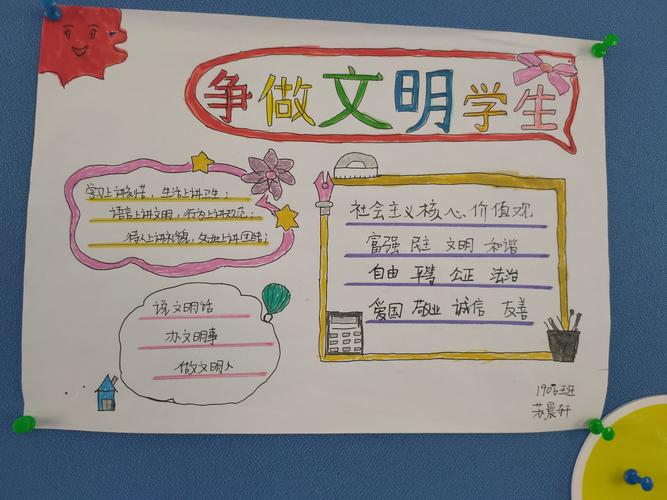 争做文明学生
学习上讲刻苦，生活上讲卫生；
语言上讲文明，行为上讲规范；
待人上讲礼貌，处世上讲团结；
社会主义核心价值观
富强 民主 文明 和谐
自由 平等 公正 法治
爱国 敬业 诚信 友善
说文明话
办文明事
做文明人
1906班
苏晨轩